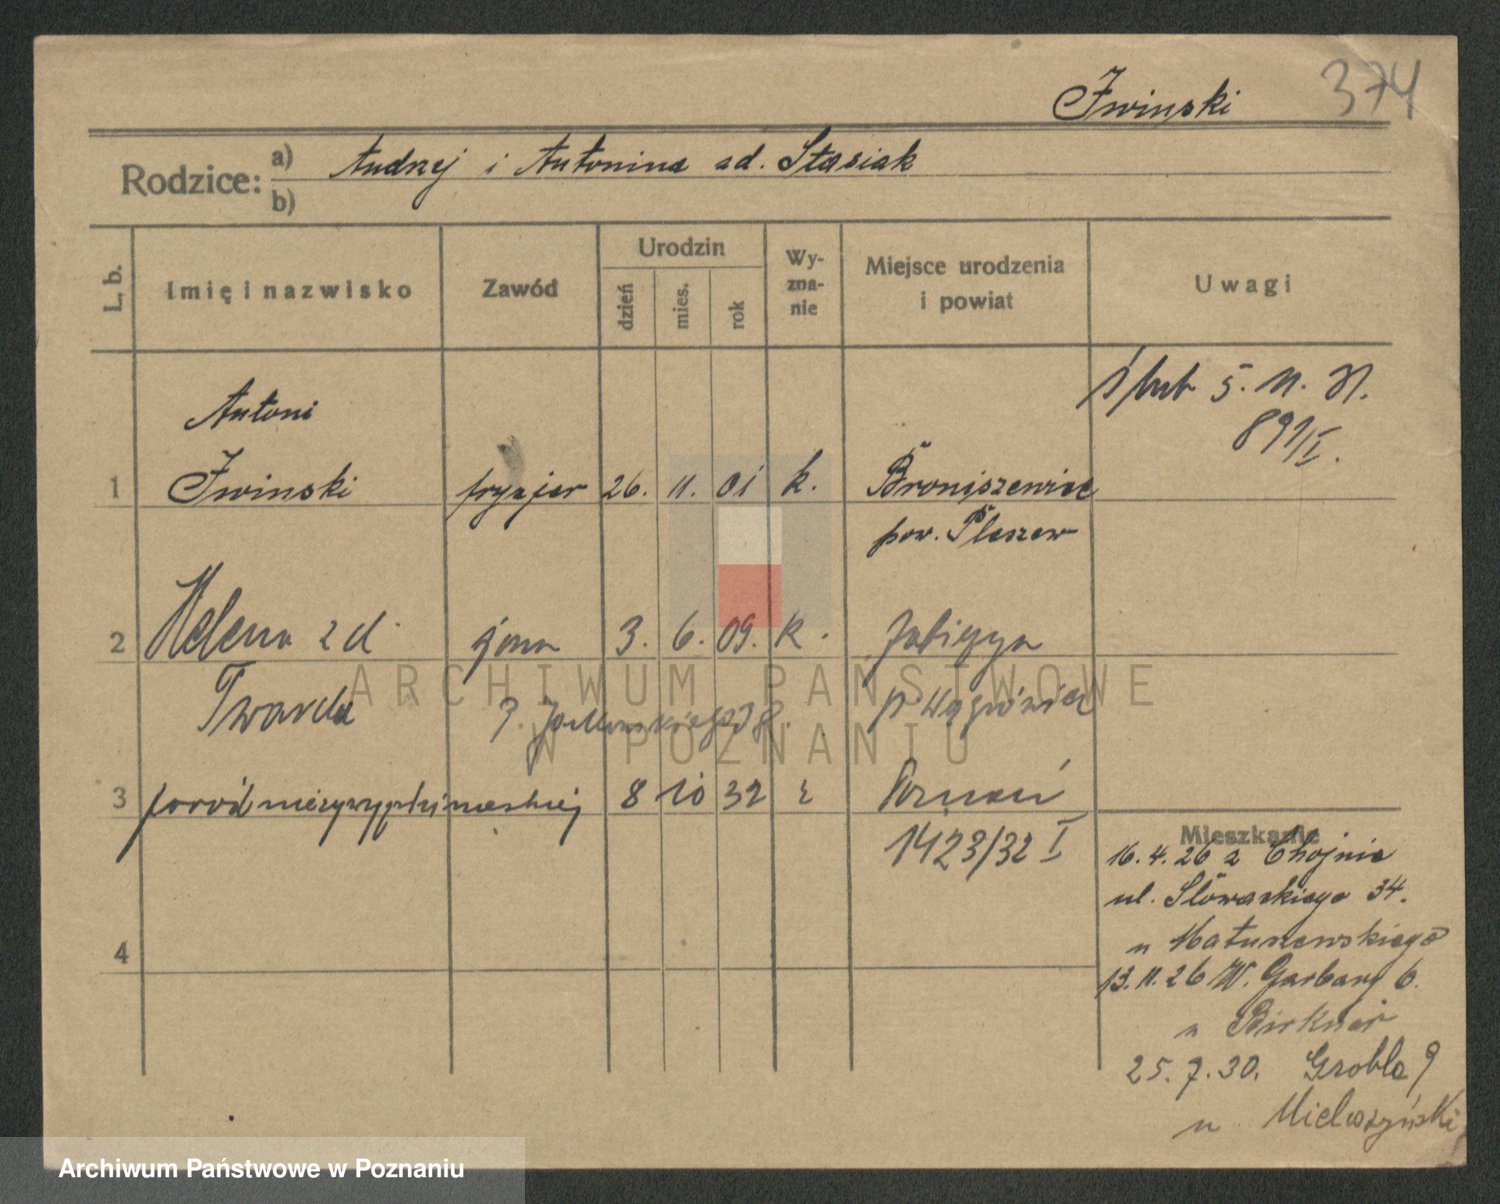 Iwinski 374
Rodzice: a) Andrzej i Antonina zd. Stasiak
b)
L. b. Imię i nazwisko Zawód Urodzin dzień mies. rok Wyznanie Miejsce urodzenia i powiat Uwagi
Ślub 5. 11. 31.
891/I.
Antoni
1 Iwinski fryzjer 26. 11. 01 k. Broniszewice
pow. Pleszew
2 Helena zd. żona 3. 6. 09. k.
Twarda p. Wągrówiec
3 poród 8 10 32 Poznań
1423/32 I
4
Mieszkanie
16. 4. 26 z Chojnic
ul. Słowackiego 34.
u Matuszewskiego
13. 11. 26 W. Garbary 6.
u Birkner
25. 7. 30. Grobla 9
u Mieloszyński
ARCHIWUM PAŃSTWOWE
W POZNANIU
Archiwum Państwowe w Poznaniu